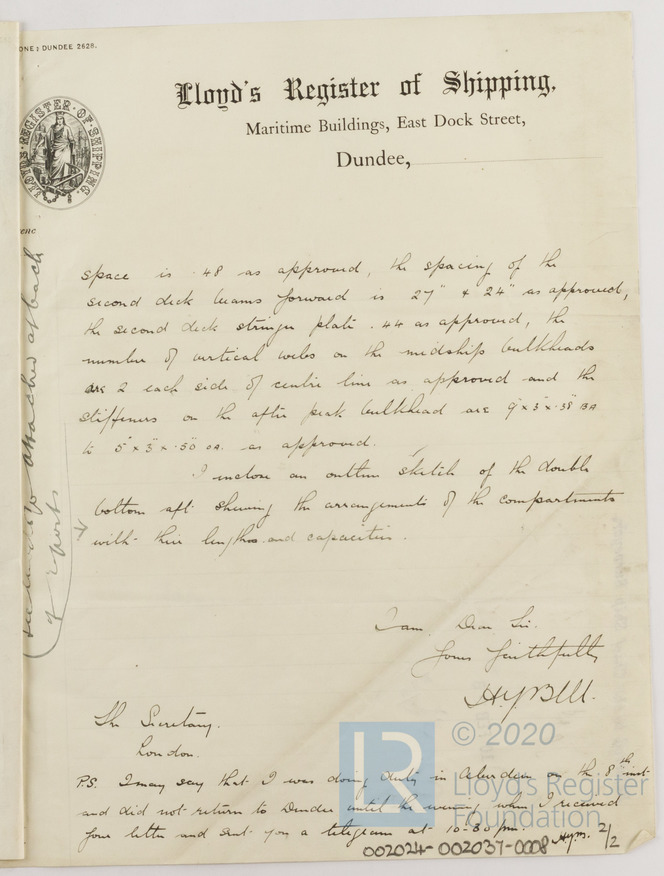 ONE: DUNDEE 2628.
Lloyd's Register of Shipping,
Maritime Buildings, East Dock Street,
Dundee,
LLOYD'S·REGISTER·OF·SHIPPING.
space is .48 as approved, the spacing of the
second deck beams forward is 27" & 24" as approved,
the second deck stringer plate .44 as approved, the
number of vertical webs on the midship bulkheads
are 2 each side of centre line as approved and the
stiffeners on the after peak bulkhead are 9" x 3" x .38" BA
to 5" x 3" x .30" OA. as approved.
I inclose an outline sketch of the double
bottom aft shewing the arrangements of the compartments
with their lengths and capacities.
attached at back
of reports
I am, Dear Sir.
Yours faithfully
The Secretary.
London.
P.S. I may say that I was doing duty in Aberdeen on the 8th inst
and did not return to Dundee until the evening when I received
your letter and sent you a telegram at 10-30 pm.
2/2
002024-002037-0008
© 2020
Lloyd's Register
Foundation